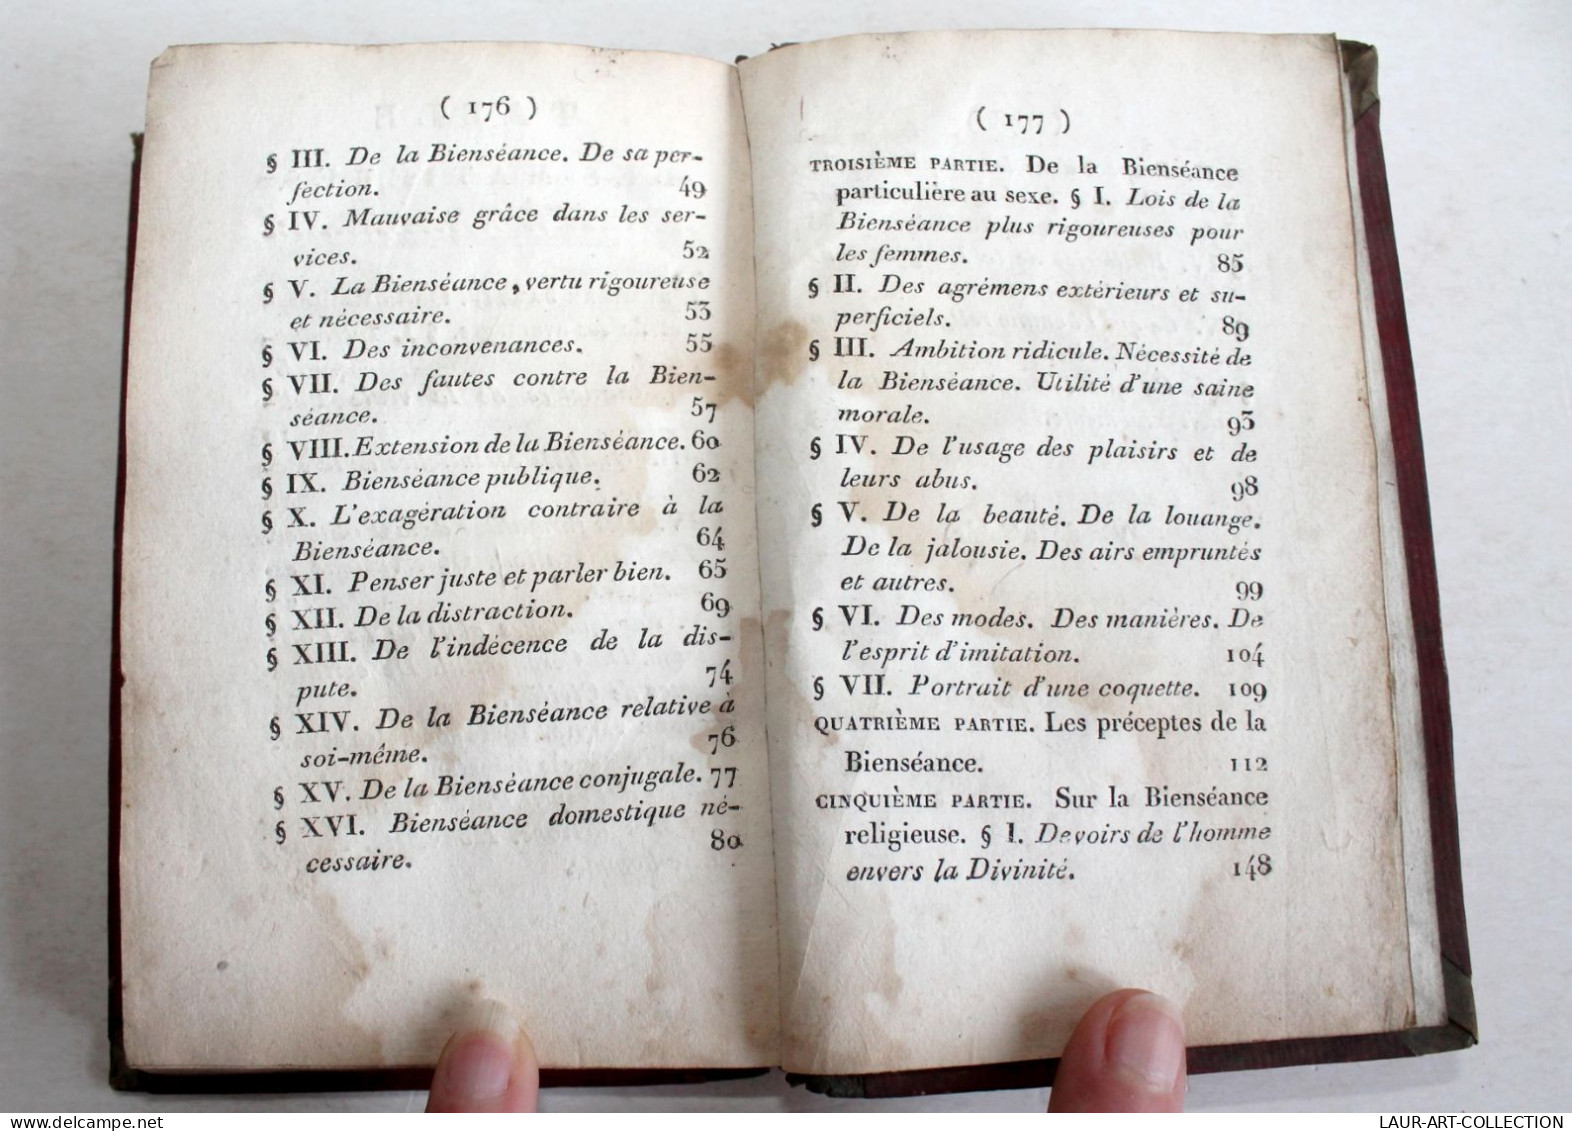 ( 176 )
§ III. De la Bienséance. De sa per-
fection. 49
§ IV. Mauvaise grâce dans les ser-
vices. 52
§ V. La Bienséance, vertu rigoureuse
et nécessaire. 53
§ VI. Des inconvenances. 55
§ VII. Des fautes contre la Bien-
séance. 57
§ VIII. Extension de la Bienséance. 60
§ IX. Bienséance publique. 62
§ X. L'exagération contraire à la
Bienséance. 64
§ XI. Penser juste et parler bien. 65
§ XII. De la distraction. 69
§ XIII. De l'indécence de la dis-
pute. 74
§ XIV. De la Bienséance relative à
soi-même. 76
§ XV. De la Bienséance conjugale. 77
§ XVI. Bienséance domestique né-
cessaire. 80
( 177 )
TROISIÈME PARTIE. De la Bienséance
particulière au sexe. § I. Lois de la
Bienséance plus rigoureuses pour
les femmes. 85
§ II. Des agrémens extérieurs et su-
perficiels. 89
§ III. Ambition ridicule. Nécessité de
la Bienséance. Utilité d'une saine
morale. 93
§ IV. De l'usage des plaisirs et de
leurs abus. 98
§ V. De la beauté. De la louange.
De la jalousie. Des airs empruntés
et autres. 99
§ VI. Des modes. Des manières. De
l'esprit d'imitation. 104
§ VII. Portrait d'une coquette. 109
QUATRIÈME PARTIE. Les préceptes de la
Bienséance. 112
CINQUIÈME PARTIE. Sur la Bienséance
religieuse. § I. Devoirs de l'homme
envers la Divinité. 148
LAUR-ART-COLLECTION